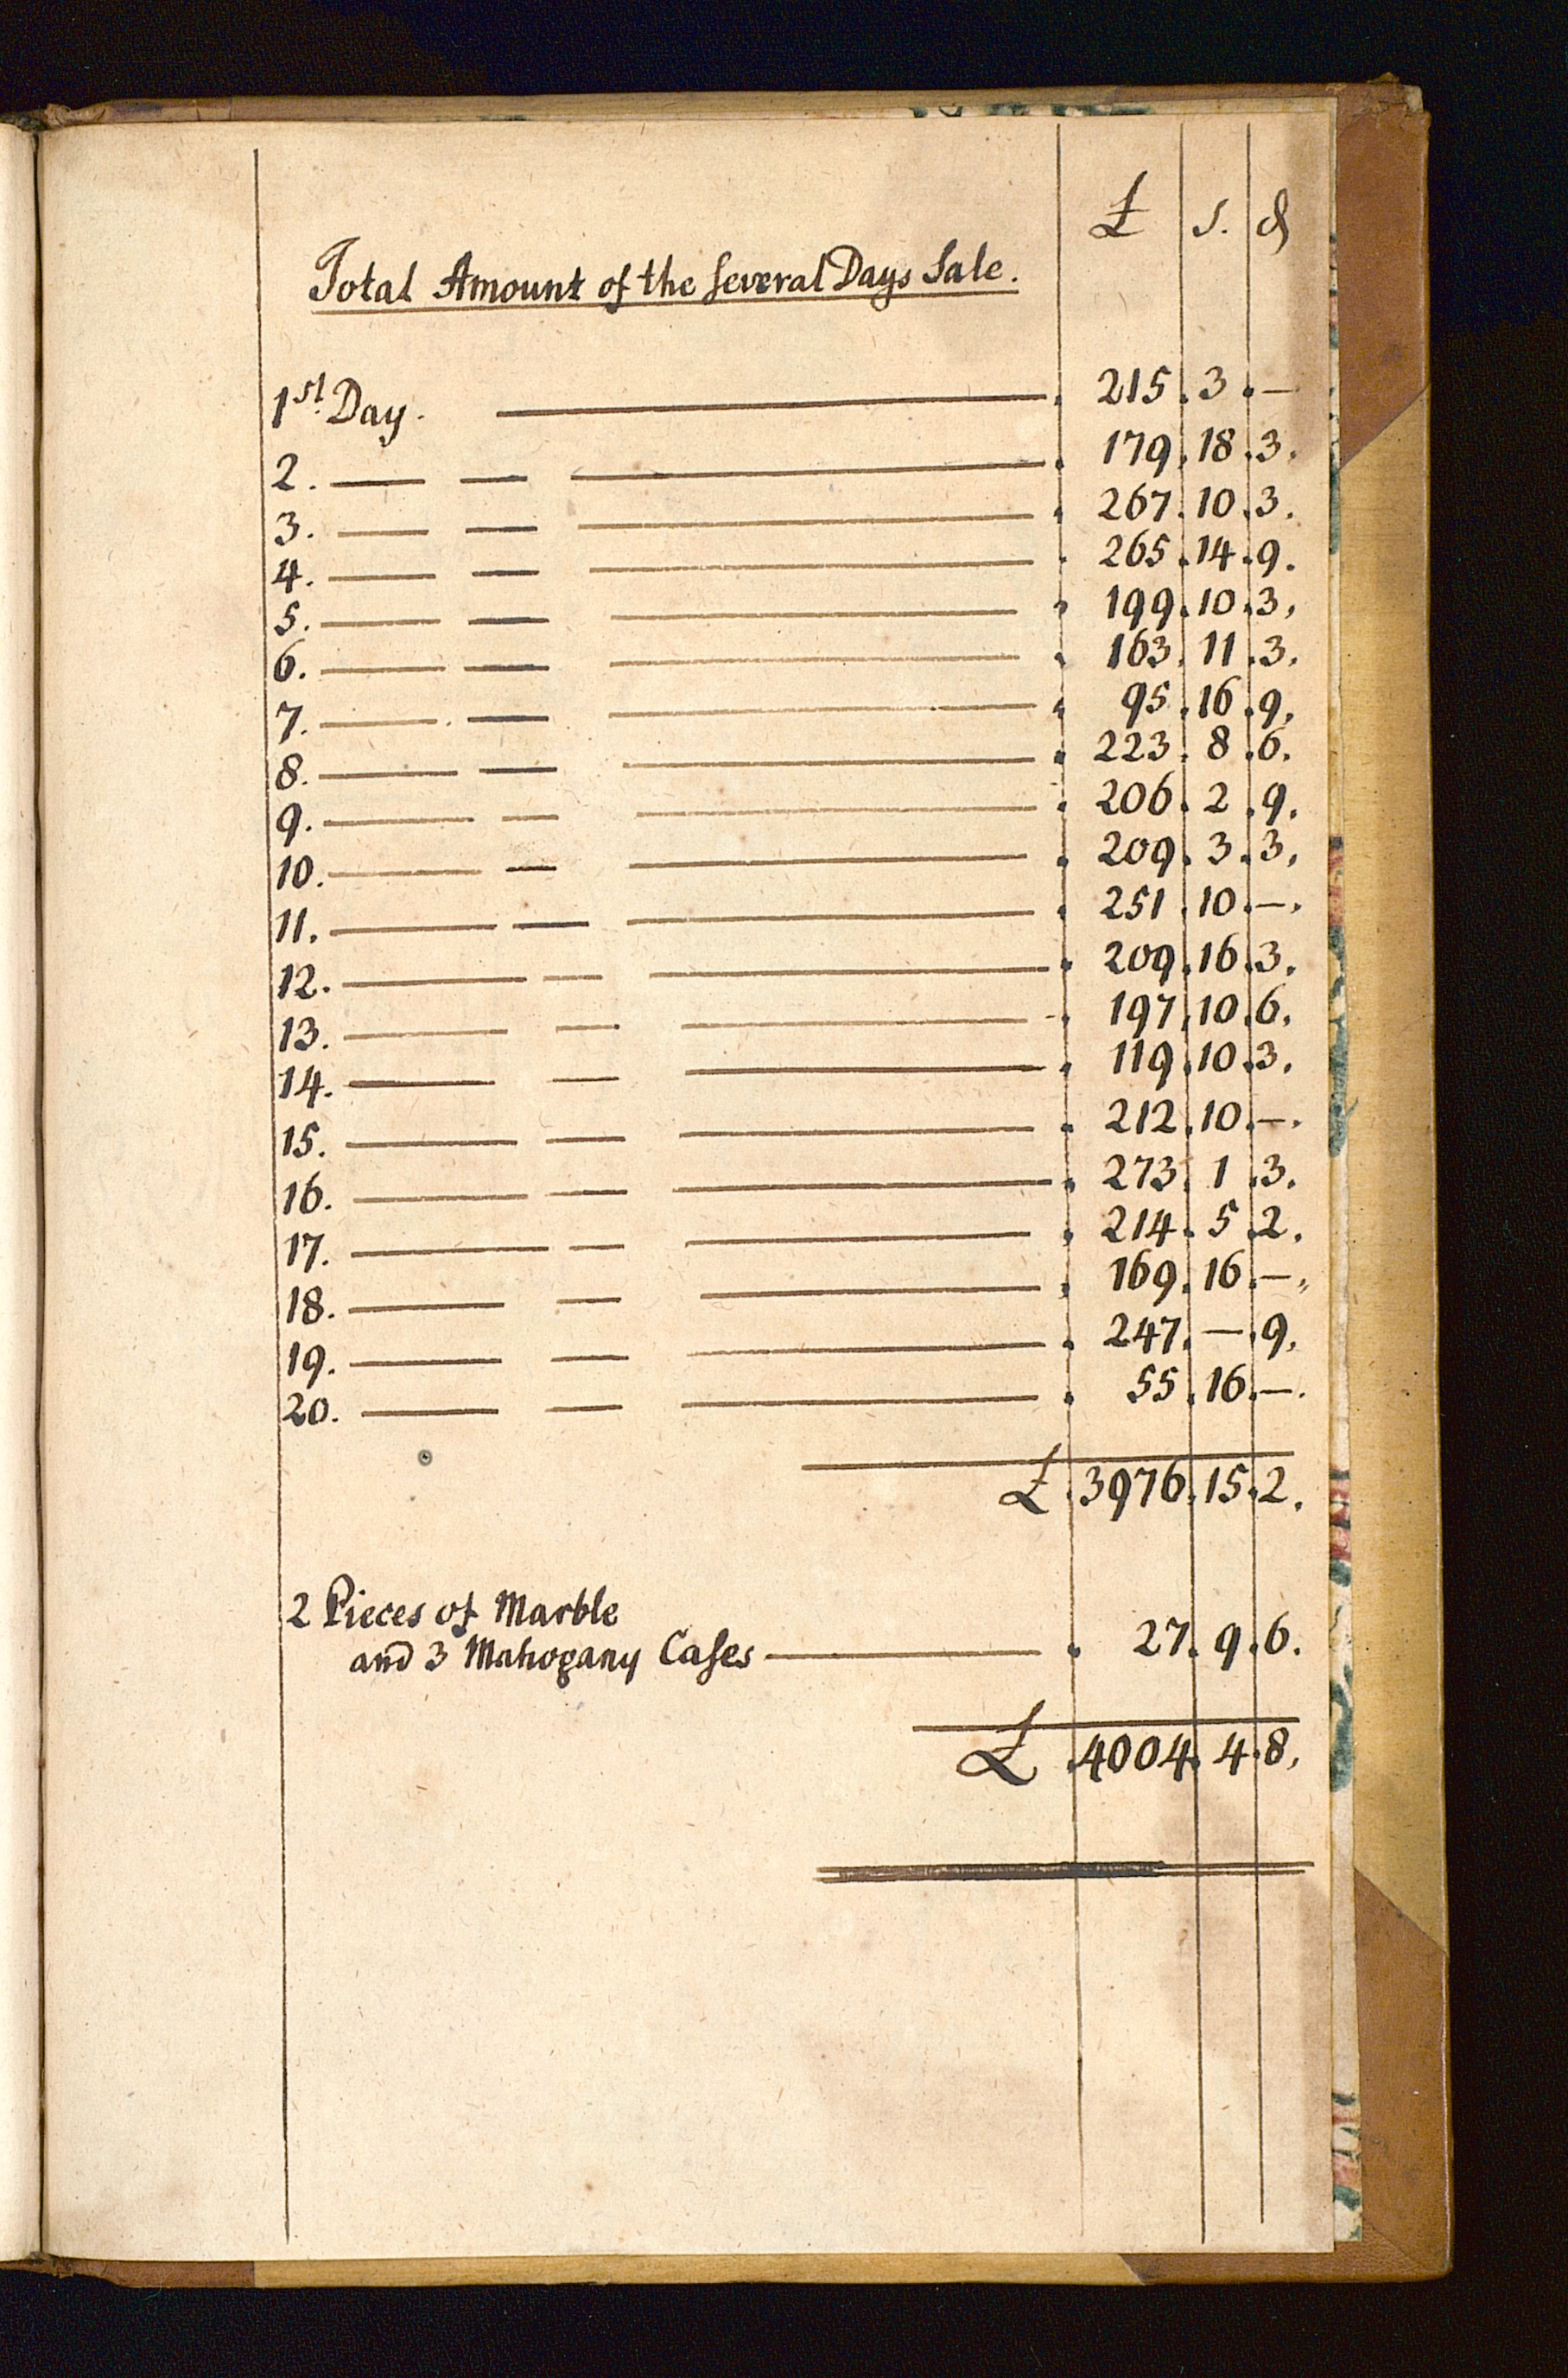 £ s. d
Total Amount of the several Days Sale.
1st. Day. . 215 . 3 . —
2. . 179 . 18 . 3.
3. . 267 . 10 . 3.
4. . 265 . 14 . 9.
5. . 199 . 10 . 3.
6. . 163 . 11 . 3.
7. . 95 . 16 . 9.
8. . 223 . 8 . 6.
9. . 206 . 2 . 9.
10. . 209 . 3 . 3.
11. . 251 . 10 . —.
12. . 209 . 16 . 3.
13. . 197 . 10 . 6.
14. . 119 . 10 . 3.
15. . 212 . 10 . —.
16. . 273 . 1 . 3.
17. . 214 . 5 . 2.
18. . 169 . 16 . —.
19. . 247 . — . 9.
20. . 55 . 16 . —.
£ . 3976 . 15 . 2.
2 Pieces of Marble
and 3 Mahogany Cases . 27 . 9 . 6.
£ . 4004 . 4 . 8.